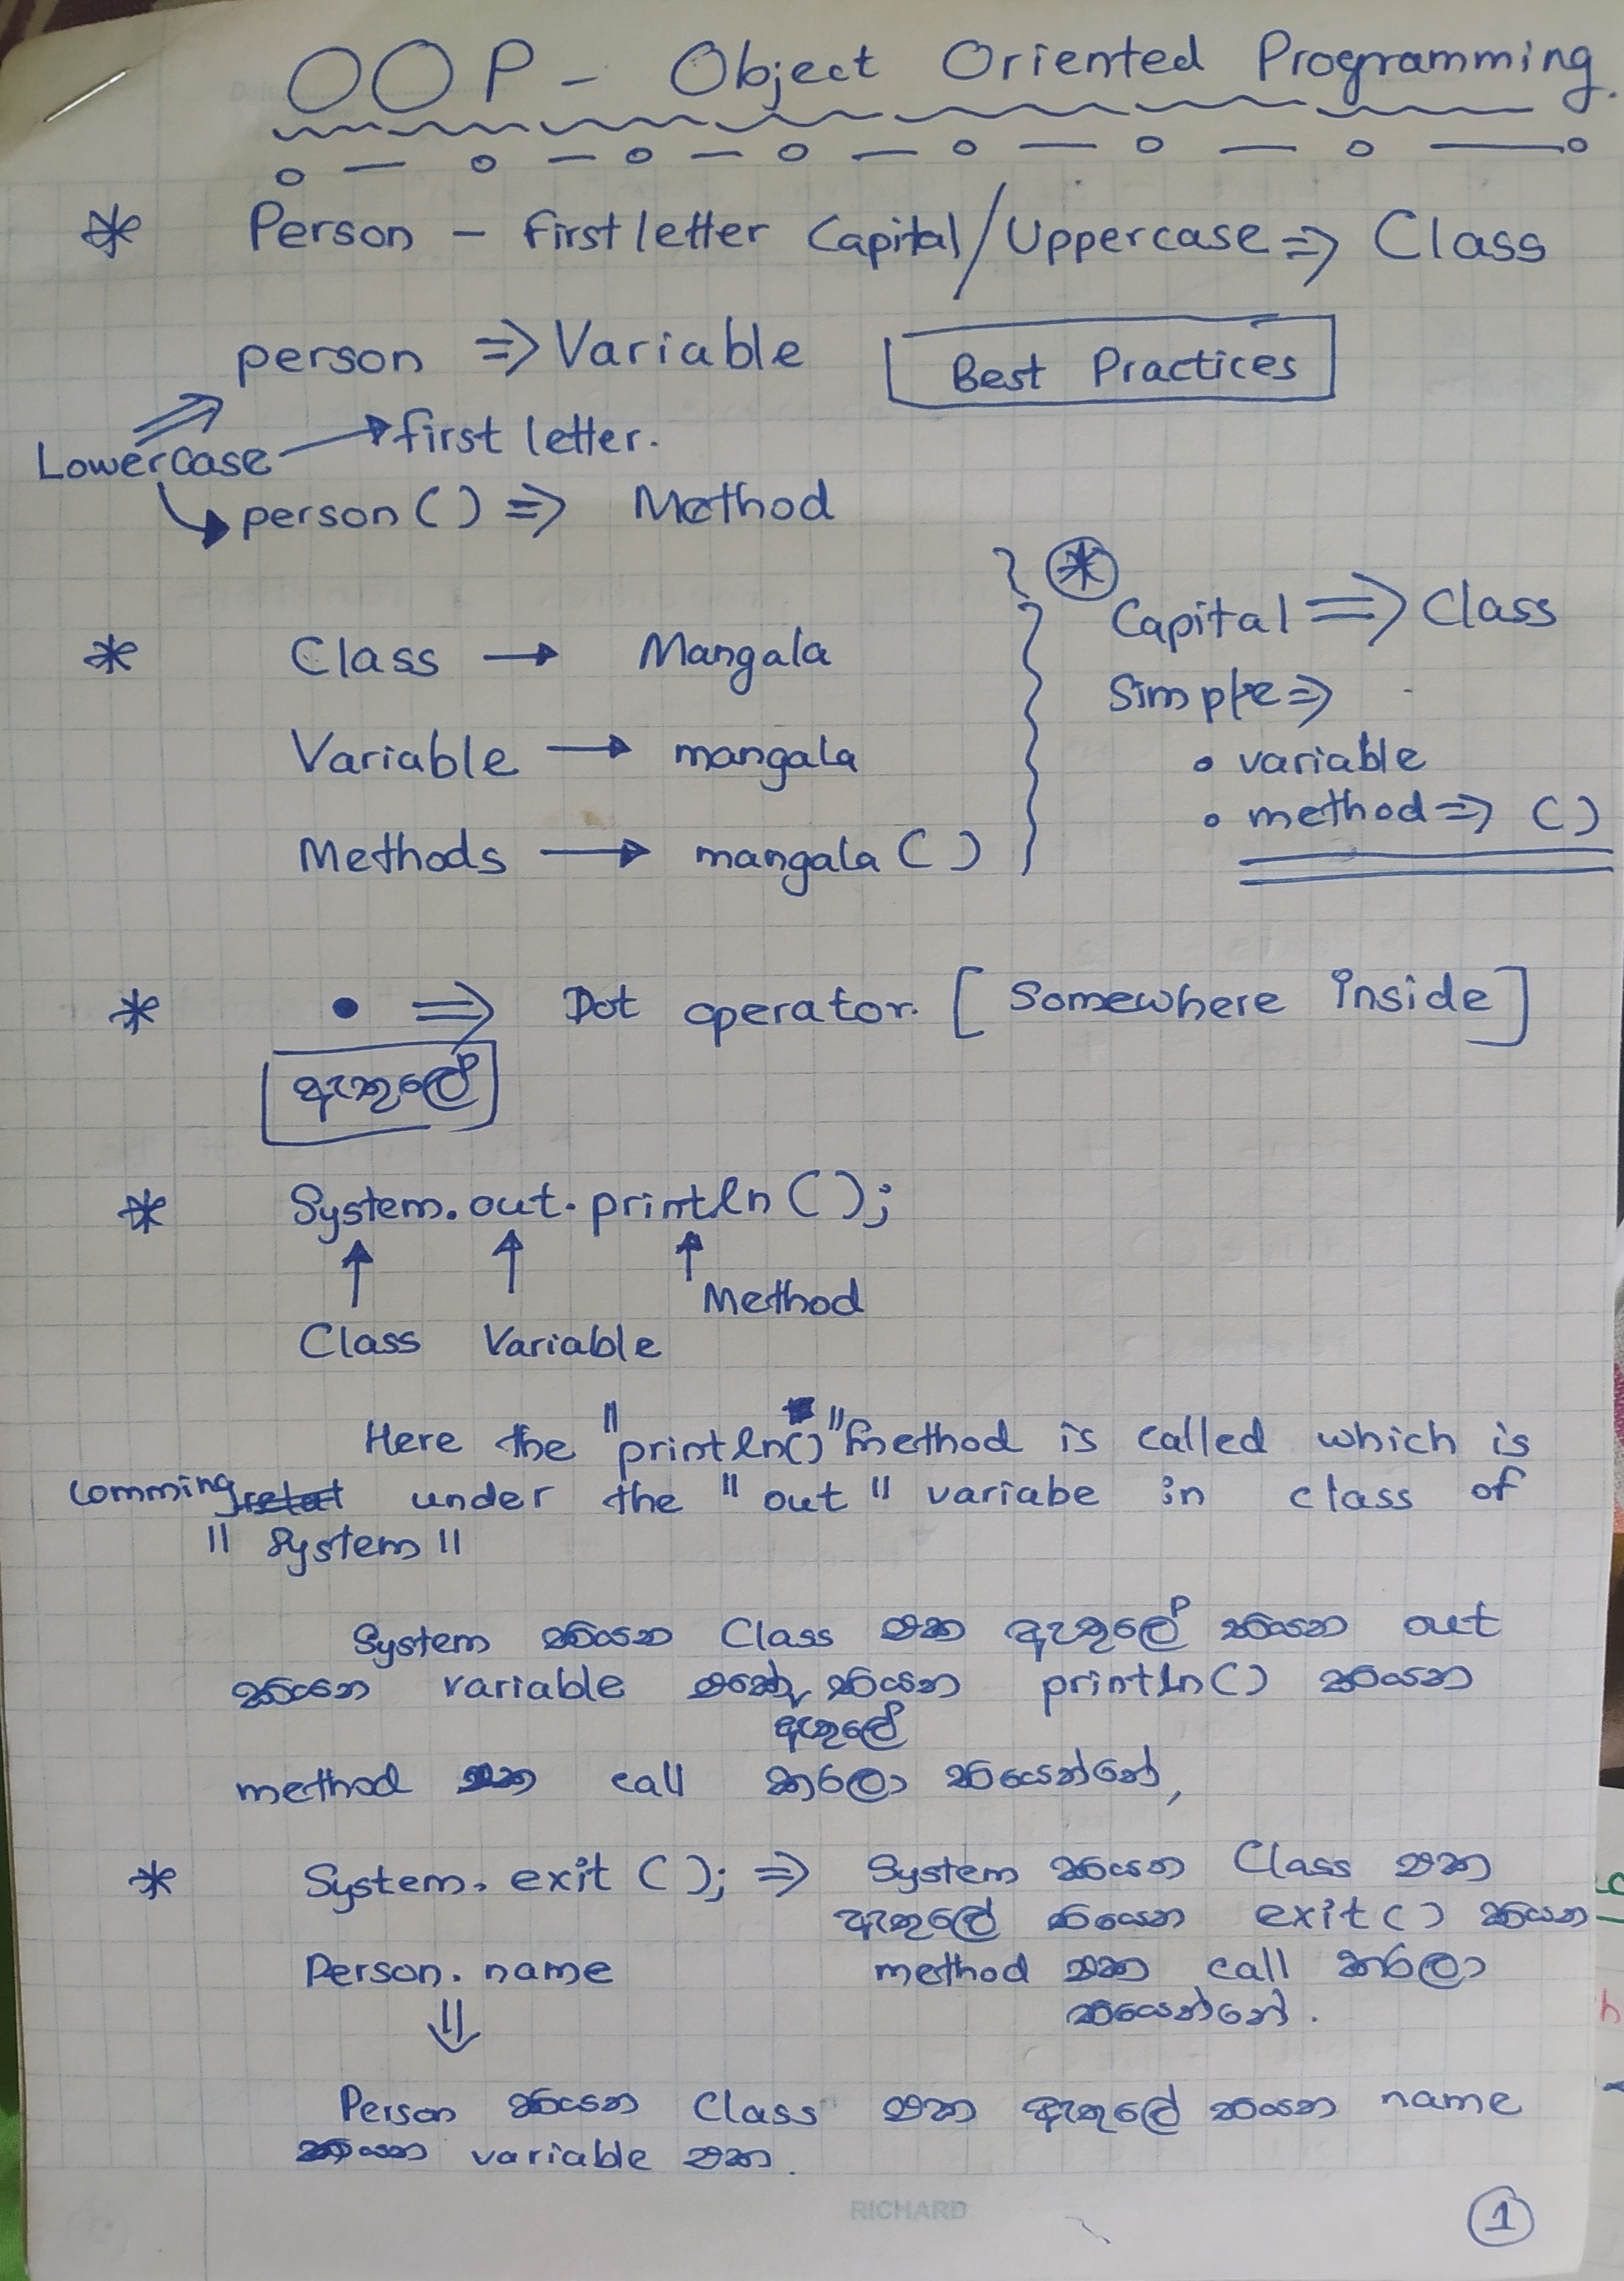 OOP - Object Oriented Programming.
* Person - first letter Capital/Uppercase => Class
person => Variable
Best Practices
Lowercase → first letter.
person () => Method
* Class → Mangala
Variable → mangala
Methods → mangala ()
* Capital => Class
Simple =>
• variable
• method => ()
* • => Dot operator. [Somewhere inside]
ඇතුලේ
* System.out.println();
Method
Class Variable
Here the "println()" method is called which is
comming under the "out" variabe in class of
"System"
System කියන Class එක ඇතුලේ තියන out
කියන variable එකේ තියන println() කියන
ඇතුලේ
method එක call කරලා තියෙන්නේ,
* System. exit (); => System කියන Class එක
ඇතුලේ තියෙන exit() කියන
Person. name
method එක call කරලා
තියෙන්නේ.
Person කියන Class එක ඇතුලේ තියන name
කියන variable එක.
RICHARD
1